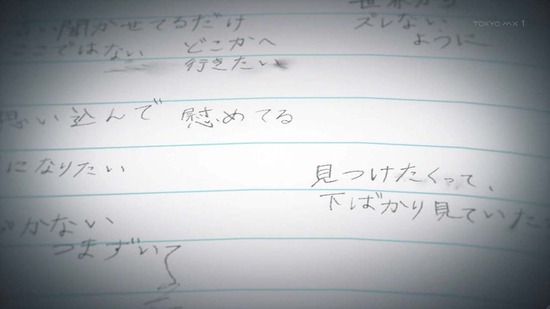 TOKYO MX 1
世界から
ズレない
ように
言い聞かせてるだけ
ここではない どこかへ
行きたい
思い込んで 慰めてる
になりたい
見つけたくって、
下ばかり見ていた
づかない
つまずいて